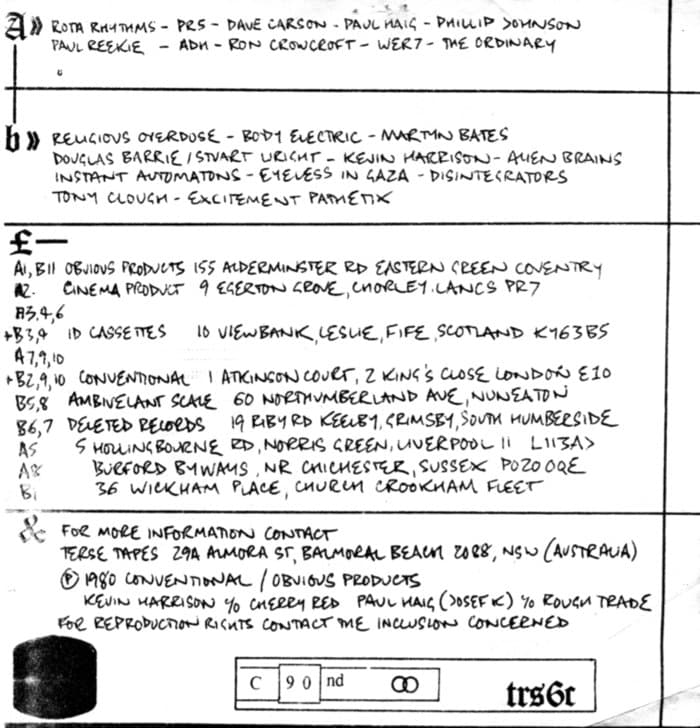 A» ROTA RHYTHMS – PRS – DAVE CARSON – PAUL HAIG – PHILLIP JOHNSON
PAUL REEKIE – ADH – RON CROWCROFT – WER7 – THE ORDINARY
b» RELIGIOUS OVERDOSE – BODY ELECTRIC – MARTYN BATES
DOUGLAS BARRIE / STUART WRIGHT – KEVIN HARRISON – ALIEN BRAINS
INSTANT AUTOMATONS – EYELESS IN GAZA – DISINTEGRATORS
TONY CLOUGH – EXCITEMENT PATHETIX
£—
A1, B11 OBVIOUS PRODUCTS 155 ALDERMINSTER RD EASTERN GREEN COVENTRY
A2. CINEMA PRODUCT 9 EGERTON GROVE, CHORLEY. LANCS PR7
A3,4,6
+B3,4 ID CASSETTES 10 VIEWBANK, LESLIE, FIFE, SCOTLAND KY63BS
A7,9,10
+B2,9,10 CONVENTIONAL 1 ATKINSON COURT, 2 KING'S CLOSE LONDON E10
B5,8 AMBIVELANT SCALE 60 NORTHUMBERLAND AVE, NUNEATON
B6,7 DELETED RECORDS 19 RIBY RD KEELBY, GRIMSBY, SOUTH HUMBERSIDE
A5 5 HOLLINGBOURNE RD, NORRIS GREEN, LIVERPOOL 11 L113A
A8 BURFORD BYWAYS, NR CHICHESTER, SUSSEX PO20 0QE
B1 36 WICKHAM PLACE, CHURCH CROOKHAM FLEET
& FOR MORE INFORMATION CONTACT
TERSE TAPES 29A ALMORA ST, BALMORAL BEACH 2088, NSW (AUSTRALIA)
Ⓟ 1980 CONVENTIONAL / OBVIOUS PRODUCTS
KEVIN HARRISON c/o CHERRY RED PAUL HAIG (JOSEF K) c/o ROUGH TRADE
FOR REPRODUCTION RIGHTS CONTACT THE INCLUSION CONCERNED
C 90 nd
trs6t